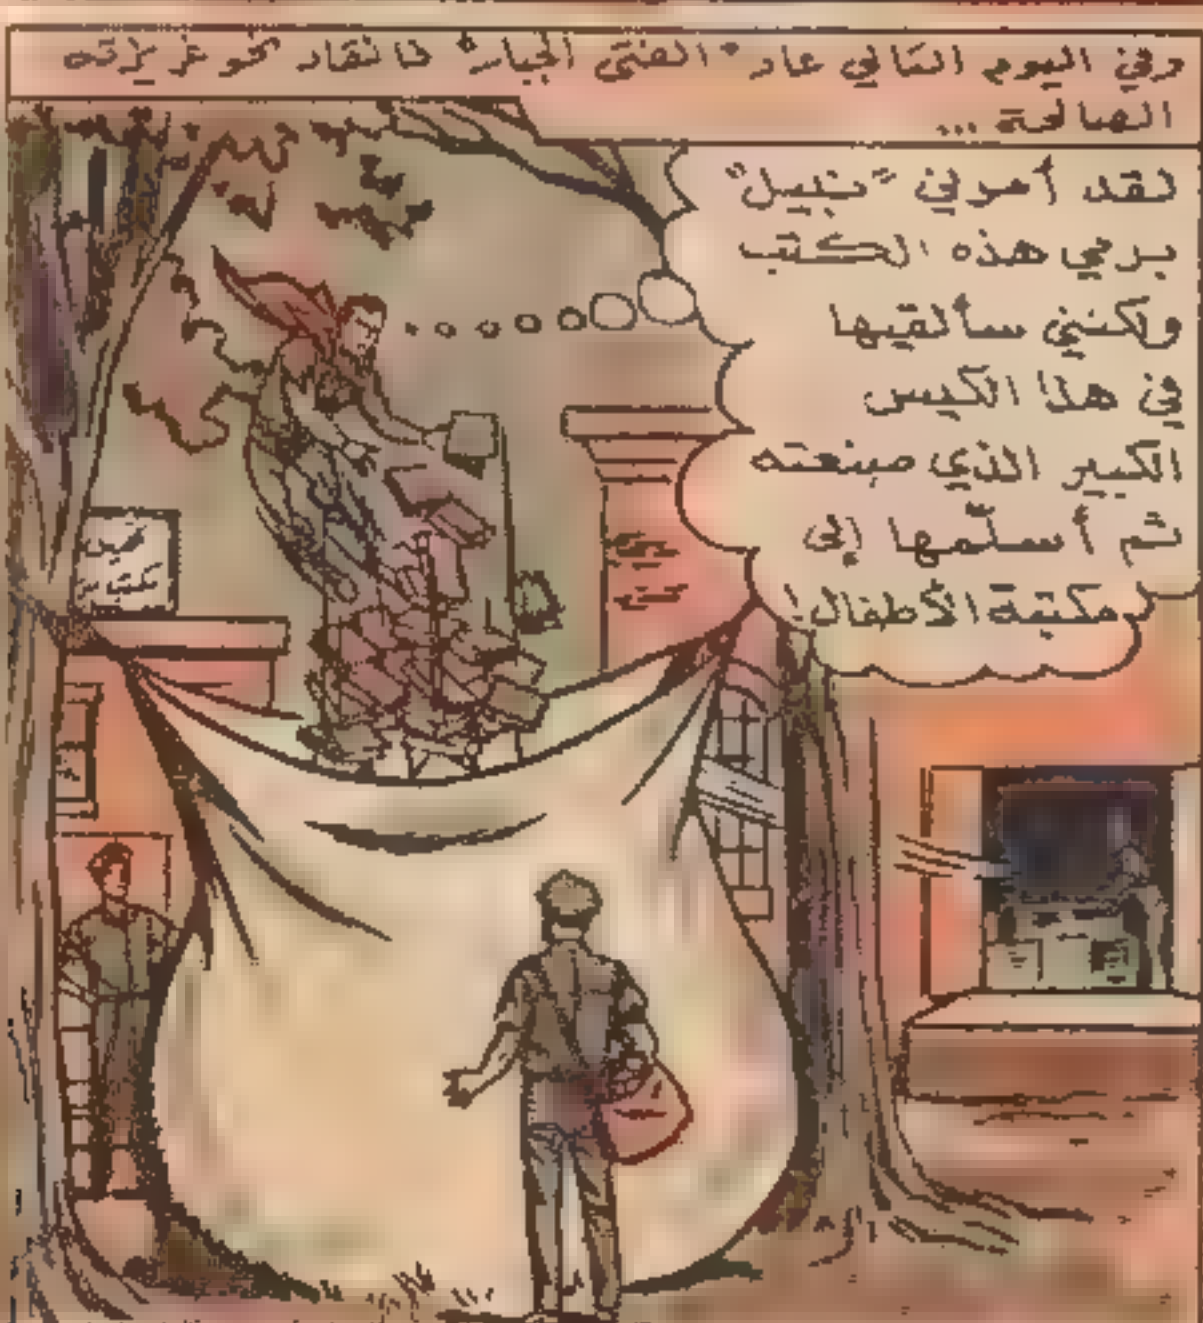 وفي اليوم التالي عاد "الفتى الجبار" فانقاد نحو غريزته
الصالحة ...
لقد أمرني "نبيل"
برمي هذه الكتب
ولكنني سألقيها
في هذا الكيس
الكبير الذي صنعته
ثم أسلّمها إلى
مكتبة الأطفال!